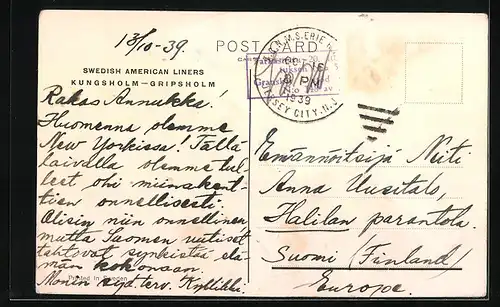 13/10-39.
POST CARD
SWEDISH AMERICAN LINERS
KUNGSHOLM—GRIPSHOLM
Rakas Annukka!
Huomenna olemme
New Yorkissa! Tällä
laivalla olemme tul-
leet ohi miinakent-
tien onnellisesti.
Olisin niin onnellinen
mutta Suomen uutiset
tahtovat synkistää elä-
män kokonaan.
Monin terv. Kyllikki.
Printed in Sweden
1939
JERSEY CITY, N.J.
Emännöitsijä Neiti
Anna Uusitalo,
Halilan parantola.
Suomi (Finland)
Europe.